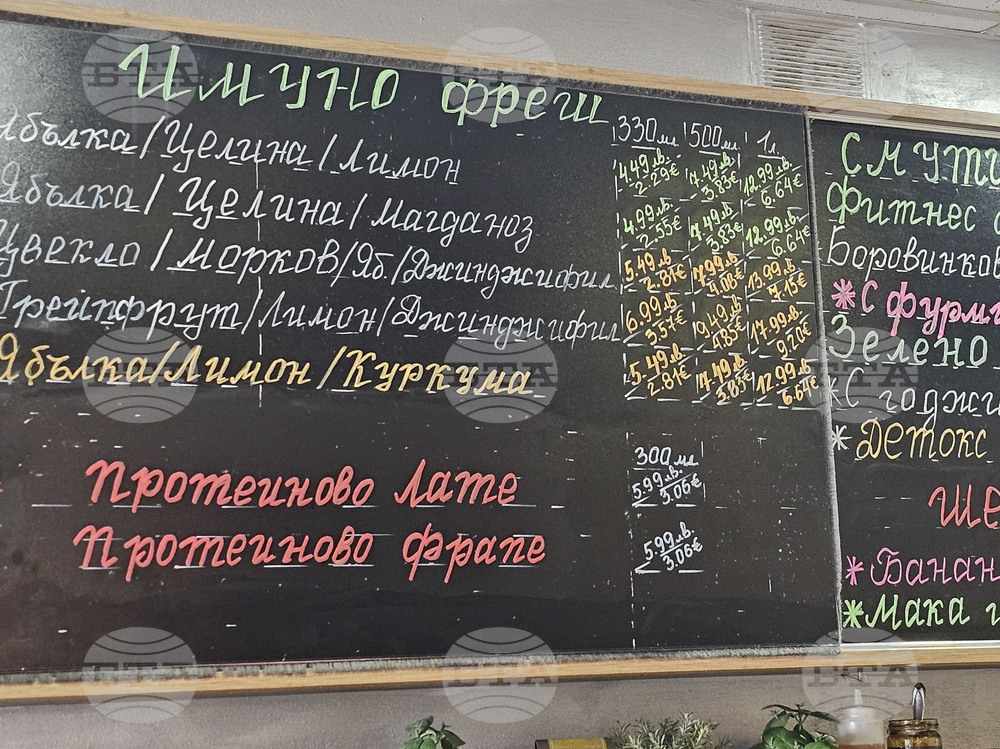 Имуно фреш
330 мл. 500 мл. 1 л.
Ябълка/Целина/Лимон 4.49 лв. 7.49 лв. 12.99 лв.
2.29€ 3.83€ 6.64€
Ябълка/Целина/Магданоз 4.99 лв. 7.49 лв. 12.99 лв.
2.55€ 3.83€ 6.64€
Цвекло/Морков/Яб./Джинджифил 5.49 лв. 7.99 лв. 13.99 лв.
2.81€ 4.08€ 7.15€
Грейпфрут/Лимон/Джинджифил 6.99 лв. 9.49 лв. 17.99 лв.
3.57€ 4.85€ 9.20€
Ябълка/Лимон/Куркума 5.49 лв. 7.49 лв. 12.99 лв.
2.81€ 3.83€ 6.64€
300 мл.
Протеиново Лате 5.99 лв.
3.06€
Протеиново фрапе 5.99 лв.
3.06€
Смути
фитнес
Боровинков
*С фурми
Зелено
*С годжи
*Детокс
Ше
*Банан
*Мака
БТА